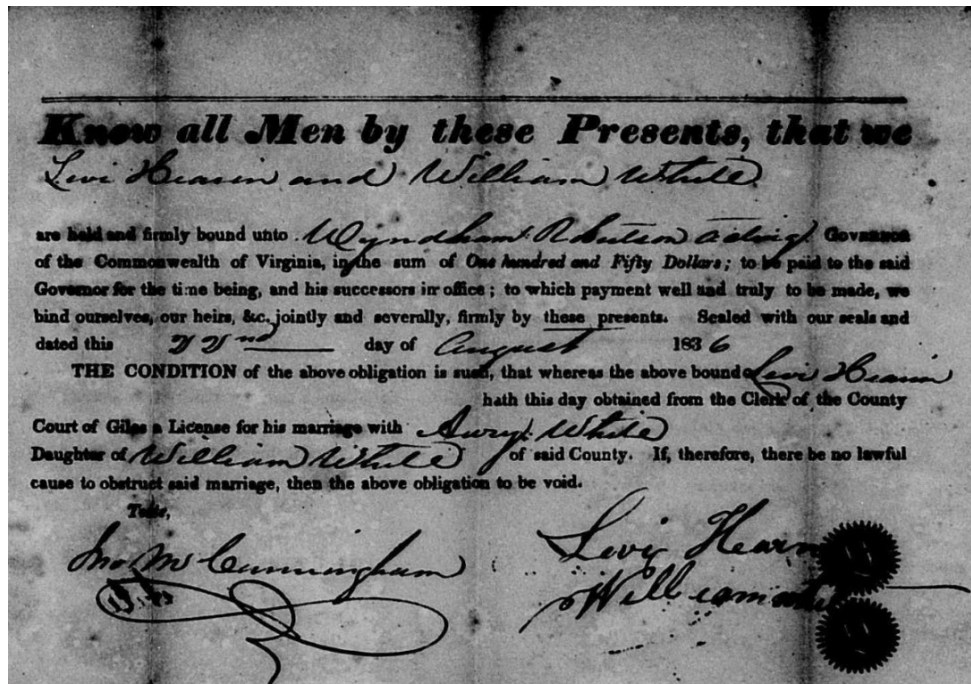 Know all Men by these Presents, that we
Levi Hearin and William White
are held and firmly bound unto Wyndham Robertson acting Governor
of the Commonwealth of Virginia, in the sum of One hundred and Fifty Dollars; to be paid to the said
Governor for the time being, and his successors in office; to which payment well and truly to be made, we
bind ourselves, our heirs, &c. jointly and severally, firmly by these presents. Sealed with our seals and
dated this 22nd day of August 1836
THE CONDITION of the above obligation is such, that whereas the above bound Levi Hearin
hath this day obtained from the Clerk of the County
Court of Giles a License for his marriage with White
Daughter of William White of said County. If, therefore, there be no lawful
cause to obstruct said marriage, then the above obligation to be void.
Teste,
Jno M Cunningham
Levi Hearn
William White